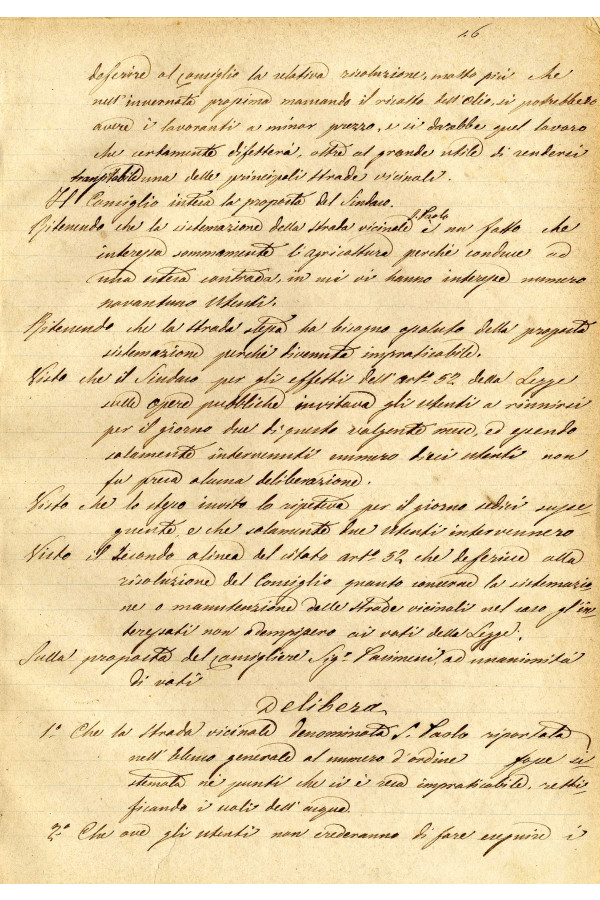 16
deferire al Consiglio la relativa risoluzione, molto più che
nell'invernata prossima mancando il ricolto dell'Olio, si potrebbero
avere i lavoranti a minor prezzo, e si darebbe quel lavoro
che certamente difetterà, oltre al grande utile di rendersi
transitabile una delle principali strade vicinali.
Il Consiglio intesa la proposta del Sindaco.
Ritenendo che la sistemazione della strada vicinale S. Paolo è un fatto che
interessa sommamente l'agricoltura perchè conduce ad
una estesa contrada, in cui vi hanno interesse numero
novantuno Utenti.
Ritenendo che la strada stessa ha bisogno assoluto della proposta
sistemazione perchè divenuta impraticabile.
Visto che il Sindaco per gli effetti dell'art.° 52 della Legge
sulle opere pubbliche invitava gli utenti a riunirsi
per il giorno due di questo volgente mese, ed essendo
solamente intervenuti numero dieci utenti non
fu presa alcuna deliberazione.
Visto che lo stesso invito lo ripeteva per il giorno sedici susse-
guente, e che solamente due Utenti intervennero
Visto il Secondo alinea del citato art.° 52 che deferisce alla
risoluzione del Consiglio quanto concerne la sistemazio
ne o manutenzione delle strade vicinali nel caso gl'in
teressati non adempissero ai voti della Legge.
Sulla proposta del Consigliere Sig.r ad unanimità
di voti
Delibera
1.° Che la strada vicinale denominata S. Paolo riportata
nell'Elenco generale al numero d'ordine fosse si
stemata nè punti che si è resa impraticabile, retti-
ficando i scoli dell'acque.
2.° Che ove gli utenti non crederanno di fare eseguire i